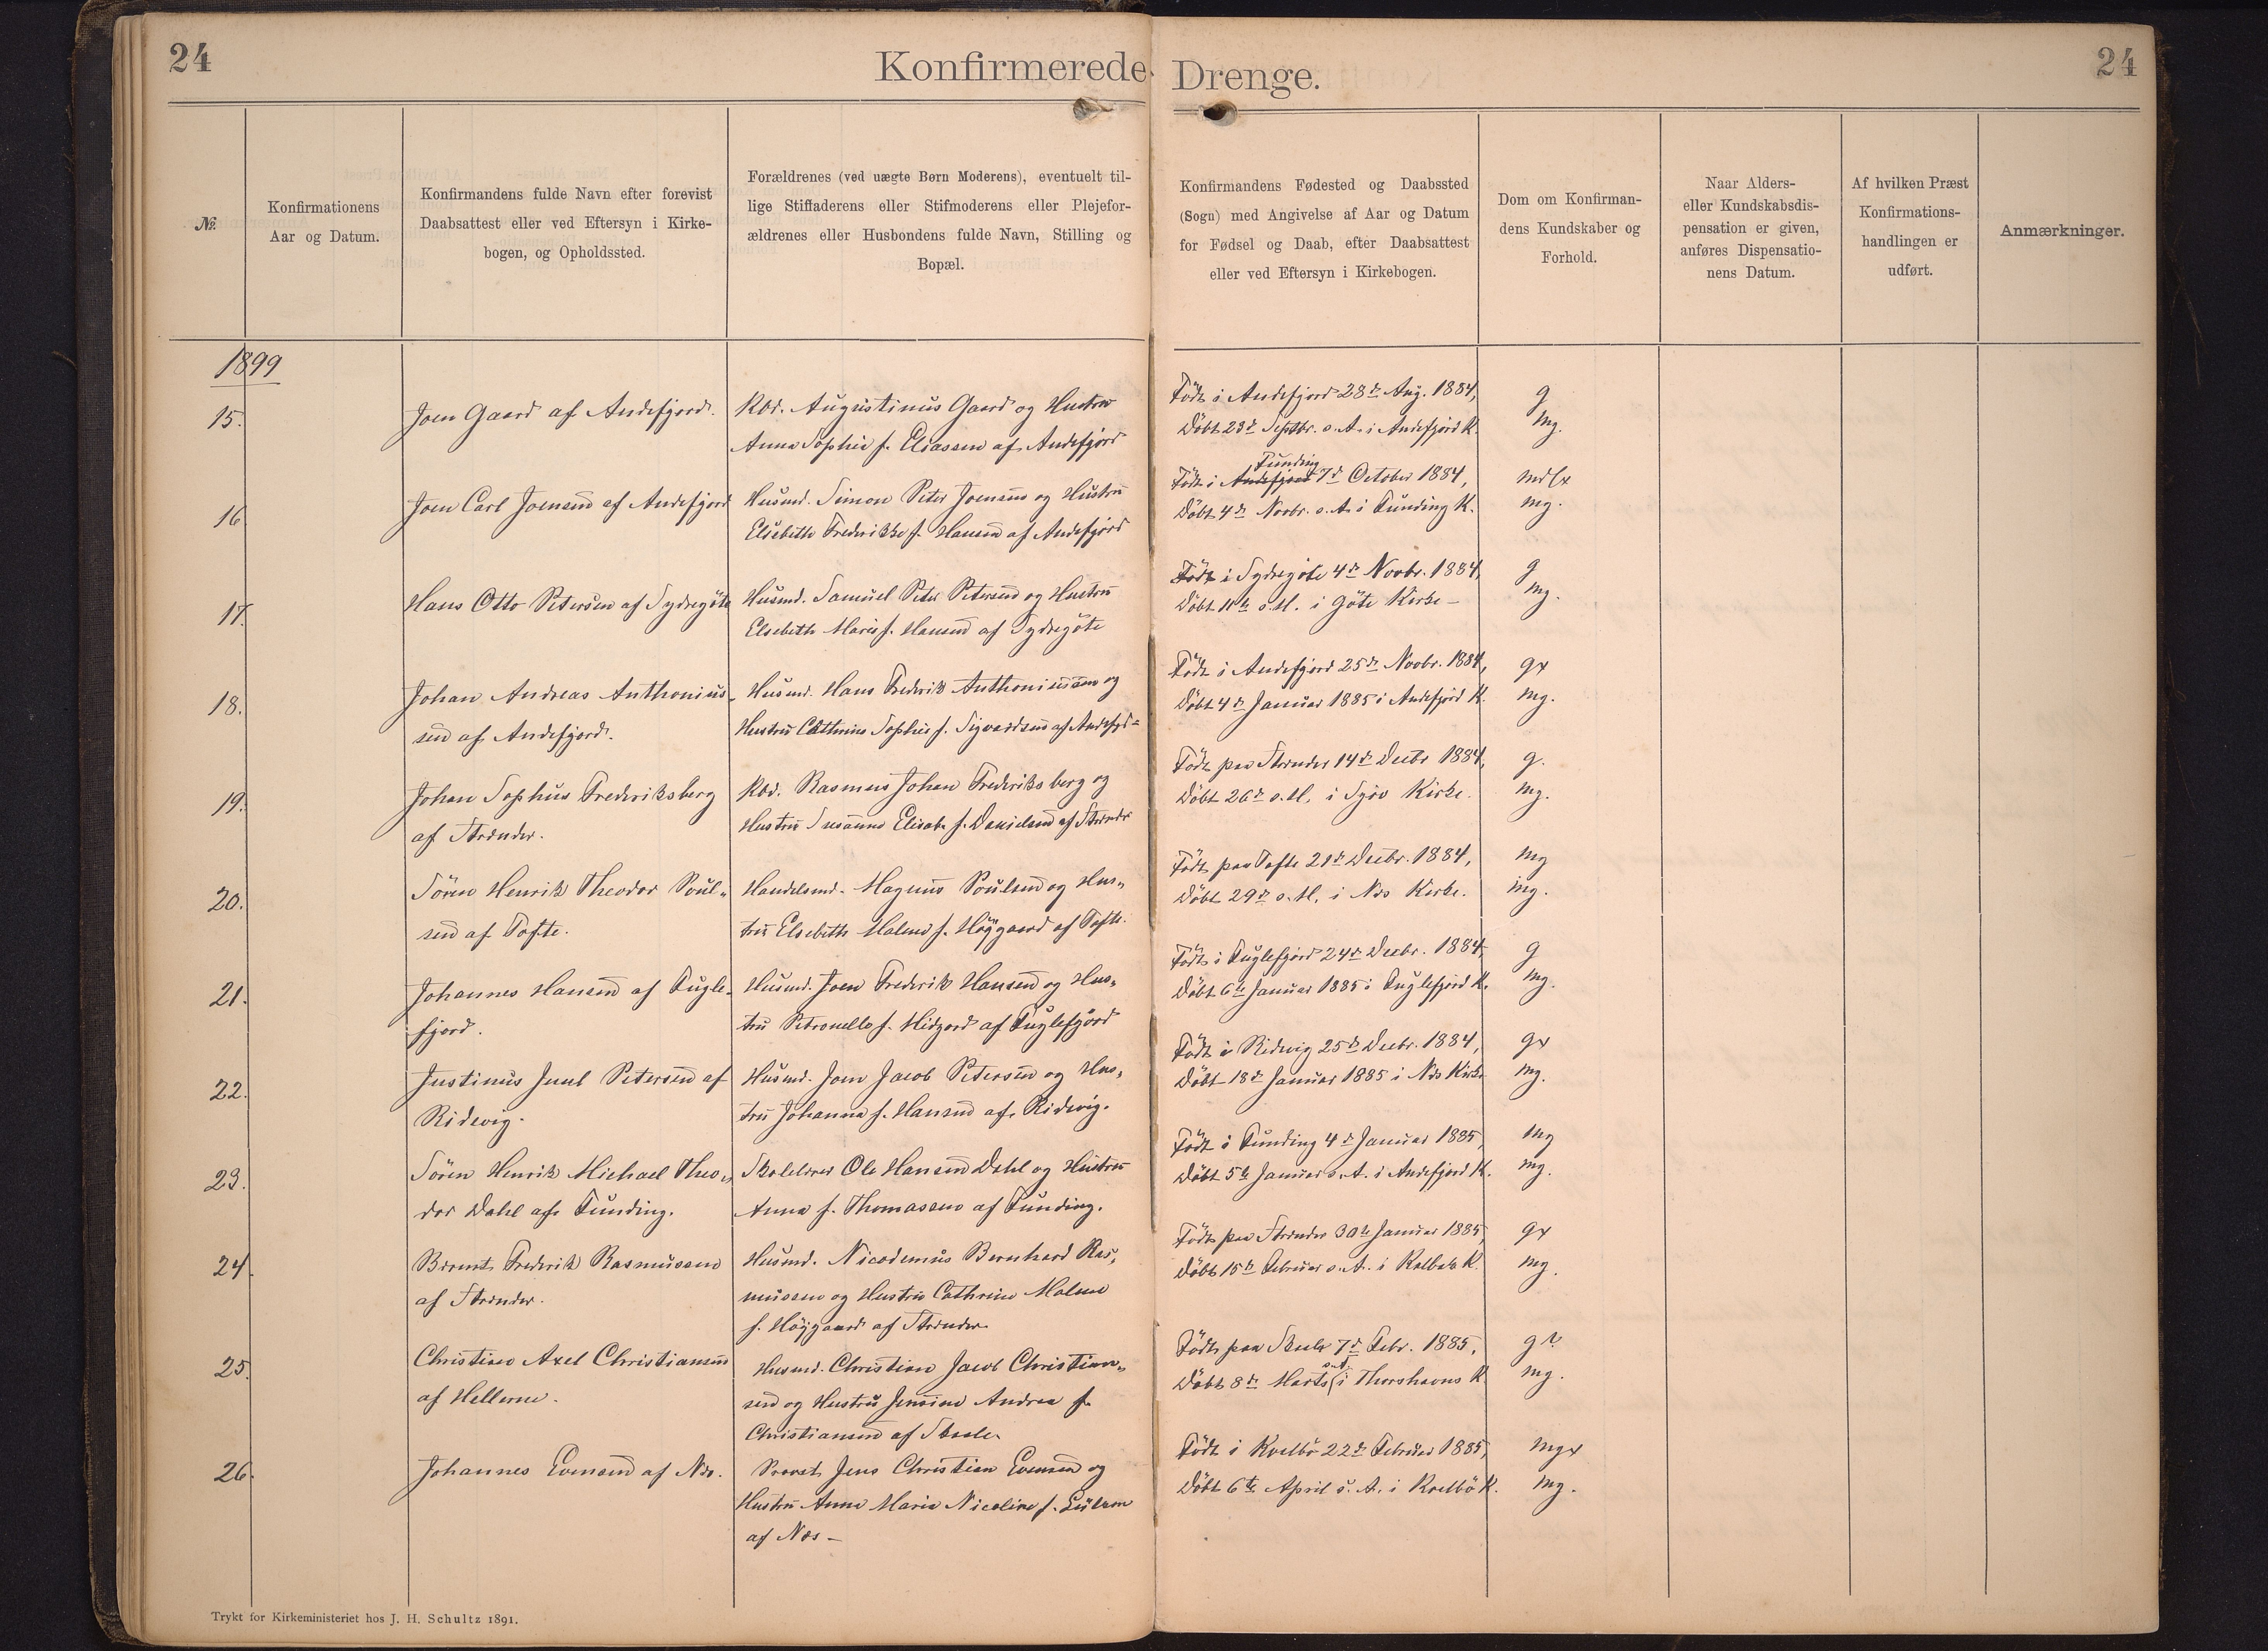 24
Konfirmerede Drenge.
24
№.
Konfirmationens
Aar og Datum.
Konfirmandens fulde Navn efter forevist
Daabsattest eller ved Eftersyn i Kirke-
bogen, og Opholdssted.
Forældrenes (ved uægte Børn Moderens), eventuelt til-
lige Stiffaderens eller Stifmoderens eller Plejefor-
ældrenes eller Husbondens fulde Navn, Stilling og
Bopæl.
Konfirmandens Fødested og Daabssted
(Sogn) med Angivelse af Aar og Datum
for Fødsel og Daab, efter Daabsattest
eller ved Eftersyn i Kirkebogen.
Dom om Konfirman-
dens Kundskaber og
Forhold.
Naar Alders-
eller Kundskabsdis-
pensation er given,
anføres Dispensatio-
nens Datum.
Af hvilken Præst
Konfirmations-
handlingen er
udført.
Anmærkninger.
1899
15.
Joen Gaard af Andefjord.
Kbd. Augustinus Gaard og Hustru
Anna Sophie f. Eliassen af Andefjord
Født i Andefjord 28de Aug. 1884,
Døbt 23de Septbr. s. A. i Andefjord K.
g
mg.
16
Joen Carl Joensen af Andefjord
Husmd. Simon Peter Joensen og Hustru
Elsebeth Frederikke f. Hansen af Andefjord
Funding
Født i Andefjord 7de October 1884,
Døbt 4de Novbr. s. A. i Funding K.
mdlx
mg.
17.
Hans Otto Petersen af Sydregöte
Husmd. Samuel Peter Petersen og Hustru
Elsebeth Marie f. Hansen af Sydregöte
Født i Sydregöte 4de Novbr. 1884,
Døbt 11te s. M. i Göte Kirke –
g
mg.
18.
Johan Andreas Anthonius-
sen af Andefjord.
Husmd. Hans Frederik Anthoniussen og
Hustru Cathrine Sophie f. Sigvardsen af Andefjd=
Født i Andefjord 25de Novbr. 1884,
Døbt 4de Januar 1885 i Andefjord K.
gx
mg.
19.
Johan Sophus Frederiksberg
af Strender.
Kbd. Rasmus Johan Frederiksberg og
Hustru Susanne Elisab. f. Danielsen af Strender
Født paa Strender 14de Decbr 1884,
Døbt 26de s. M. i Sjov Kirke.
g.
mg.
20.
Sören Henrik Theodor Poul-
sen af Tofte.
Handelsmd. Magnus Poulsen og Hus-
tru Elsebeth Malene f. Höjgaard af Tofte.
Født paa Tofte 21de Decbr. 1884,
Døbt 29de s. M. i Nes Kirke.
mg
mg.
21.
Johannes Hansen af Fugle-
fjord.
Husmd. Joen Frederik Hansen og Hus-
tru Petronelle f. Midgord af Fuglefjord
Født i Fuglefjord 24de Decbr. 1884,
Døbt 6te Januar 1885 i Fuglefjord K.
g
mg.
22.
Justinus Juul Petersen af
Ridevig.
Husmd. Joen Jacob Petersen og Hus-
tru Johanna f. Hansen af Ridevig.
Født i Ridevig 25de Decbr. 1884,
Døbt 18de Januar 1885 i Nes Kirke
gx
mg.
23.
Sören Henrik Michael Theo-
dor Dahl af Funding.
Skolelærer Ole Hansen Dahl og Hustru
Anna f. Thomassen af Funding.
Født i Funding 4de Januar 1885,
Døbt 5te Januar s. A. i Andefjord K.
mg
mg.
24.
Berent Frederik Rasmussen
af Strender.
Husmd. Nicodemus Bernhard Ras-
mussen og Hustru Cathrine Malene
f. Höjgaard af Strender.
Født paa Strender 30te Januar 1885,
Døbt 15de Februar s. A. i Kolbak K.
gx
mg.
25.
Christian Axel Christiansen
af Hellerne.
Husmd. Christian Jacob Christian-
sen og Hustru Jensine Andrea f.
Christiansen af Skaale.
Født paa Skaale 7de Febr. 1885,
s. A.
Døbt 8de Marts i Thorshavns K
g?
mg.
26.
Johannes Evensen af Nes.
Provst Jens Christian Evensen og
Hustru Anne Marie Nicoline f. Lützen
af Nes –
Født i Kvalbö 22de Februar 1885,
Døbt 6te April s. A. i Kvalbö K.
mgx
mg.
Trykt for Kirkeministeriet hos J. H. Schultz 1891.